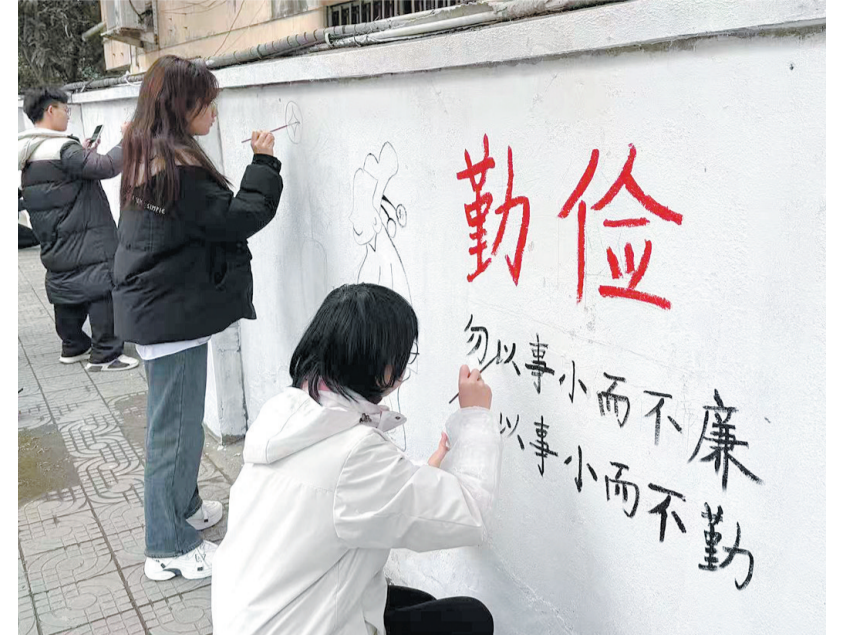 勤俭
勿以事小而不廉
以事小而不勤